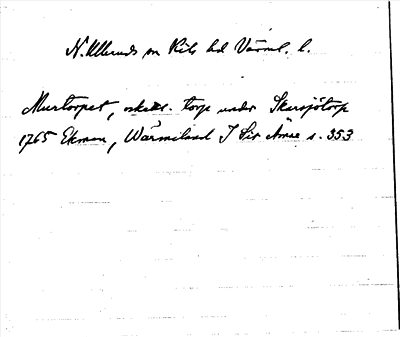 N. Ulleruds sn Kils hd Värml. l.
Murtorpet, torp under Skersjötorp
1765 Ekman, Wärmland I Sir Åmse s. 353